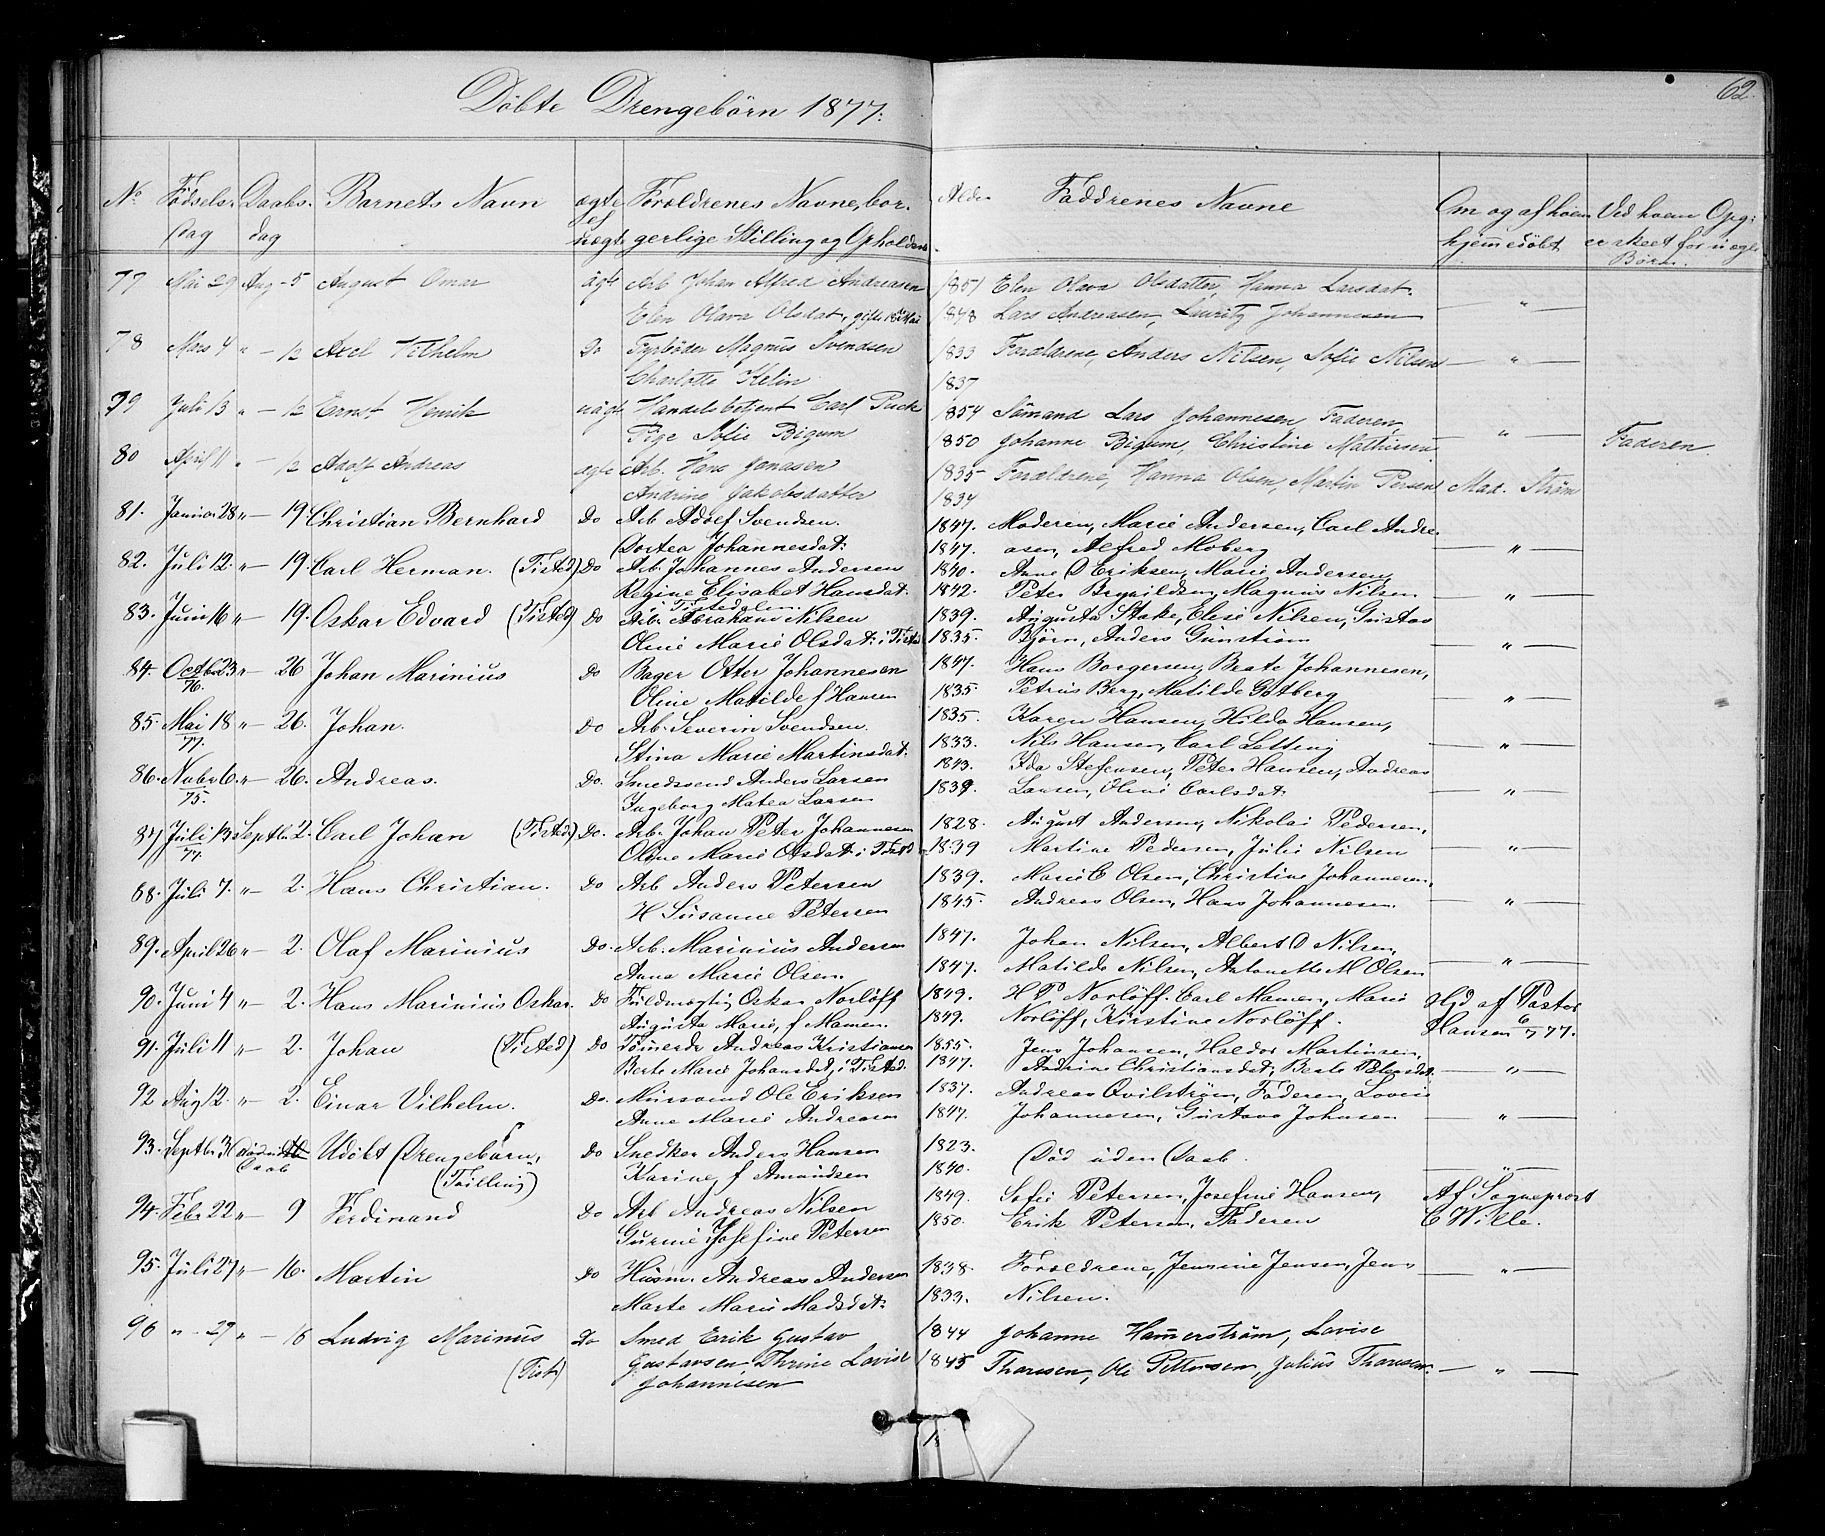 62.
Döbte Drengebörn 1877.
No. Födsels- Daabs- Barnets Navn ægte Foreldrenes Navne, bor- Alder Faddrenes Navne Om og af hvem Ved hvem Opg:
dag dag uægte gerlige Stilling og Opholds hjemmedöbt er skeet for uægte
Börn.
77 Mai 29 Aug - 5 August Omar ägte Arb Johan Alfred Andreasen 1851 Elen Olava Olsdatter, Hanna Larsdat.
Elen Olava Olsdat, gifte 1848 Lars Andreasen, Lauritz Johannesen — " —
78 Mars 4 " - 12 Axel Vilhelm Do Fyrböder Magnus Svendsen 1833 Foraldrene, Anders Nilsen, Sofie Nilsen — " —
Charlotte Kelin 1837
79 Juli 13 " - 12 Ernst Henrik uägte Handelsbetjent Carl Puck 1854 Sömand Lars Johannesen, Faderen,
Pige Sofie Bigum 1850 Johanne Bigum, Christine Mathiesen — " — Faderen.
80 April 11 " - 12 Adolf Andreas ægte Arb. Hans Jonasen 1835 Foraldrene, Hanna Olsen, Martin Persen Mad. Ström
Andrine Jakobsdatter 1834
81. Januar 28 " - 19. Christian Bernhard Do Arb Adolf Svendsen. 1847. Moderen, Marie Andersen, Carl Andre-
Dortea Johannesdat: 1847. asen, Alfred Moberg — " —
82. Juli 12. " - 19. Carl Herman. (Tisted) Do Arb. Johannes Andersen 1840. Anne D Eriksen, Marie Andersen,
Regine Elisabet Hansdat. 1842. Peter Brynildsen, Magnus Nilsen — " —
i Tistedalen.
83. Juni 16 " - 19. Oskar Edvard (Tisted) Do Arb. Abraham Nilsen 1839. Augusta Stake, Elise Nilsen, Gustav
Oline Marie Olsdat: i Tisted 1835. Björn, Anders Gunström — " —
84. Octbr 23 " - 26 Johan Marinius Do Bager Otter Johannesen 1847. Hans Borgersen, Beate Johannesen,
76. Oline Matilde f Hansen 1835. Petrus Berg, Matilde Gutberg — " —
85. Mai 18 " - 26. Johan. Do Arb. Severin Svendsen. 1835. Karen Hansen, Hilda Hansen,
77. Stina Marie Martinsdat: 1833. Nils Hansen, Carl Letting — " —
86. Novbr 6. " - 26. Andreas. Do. Smedssvend Anders Larsen 1843. Ida Stefensen, Peter Hansen, Andreas
75. Ingeborg Matea Larsen 1839. Larsen, Oline Carlsdat: — " —
87 Juli 13 Septbr 2. Carl Johan (Tisted) Do. Arb. Johan Peter Johannesen 1828. August Andersen, Nikolai Pedersen,
77. Oline Marie Olsdat: i Tisted 1839 Martine Pedersen, Julie Nilsen — " —
68. Juli 7. " - 2. Hans Christian. Do Arb Anders Petersen 1839. Marie C Olsen, Christine Johannesen,
H Susanne Petersen 1845. Andreas Olsen, Hans Johannesen. — " —
89. April 26 " - 2. Olaf Marinius Do. Arb. Marinius Andersen 1847. Johan Nilsen, Albert O Nilsen,
Anna Marie Olsen. 1847. Matilde Nilsen, Antonette M Olsen — " —
90. Juni 4 " - 2. Hans Marinius Oskar. Do Fuldmægtig Oskar Norlöff 1849. H P Norlöff. Carl Mamen, Marie Hjd af Pastor
Augusta Marie, f Mamen. 1849. Norlöff, Kirstine Norlöff. Hansen 6/7 77.
91. Juli 11 " - 2. Johan (Tisted) Do Tömerde Andreas Kristiansen 1855. Jens Johansen, Haldor Martinsen,
Berte Marie Johansdat, i Tisted. 1847. Andrine Christiansdat, Berte Petersdat. — " —
92 Aug 12. " - 2. Einar Vilhelm. Do. Mursvend Ole Eriksen 1837. Andreas Qvilström, Faderen, Lovise
Anne Marie Andreasen 1847. Johannesen, Gustava Johnsen — " —
93. Septbr 3 Död uden Udöbt Drengebarn, Do Snedker Anders Hansen 1823. Död uden Daab.
Daab (Tvilling) Karine, f Amundsen 1840. — " —
94. Febr 22 " - 9 Ferdinand Do Arb Andreas Nilsen 1849. Sofie Petersen, Josefine Hansen, Af Sogneprest
Gurine Josefine Petersen 1850. Erik Petersen, Faderen C Wille.
95. Juli 27 " - 16. Martin Do Husm. Andreas Andersen 1838. Foreldrene, Jensine Jensen, Jens
Marte Marie Madsdat: 1833. Nilsen. — " —
96 " - 29 " - 16 Ludvig Marinus Do Smed Erik Gustav 1844 Johanne Hammerström, Lovise
(Tist) Gustavsen Thrine Lovise 1845 Thoresen, Ole Pettersen, Julius Thoresen. — " —
Johannesen